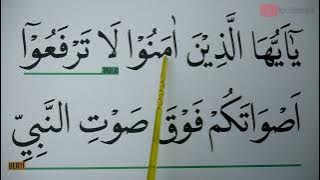 يٰٓاَيُّهَا الَّذِيْنَ اٰمَنُوْا لَا تَرْفَعُوْٓا
اَصْوَاتَكُمْ فَوْقَ صَوْتِ النَّبِيِّ